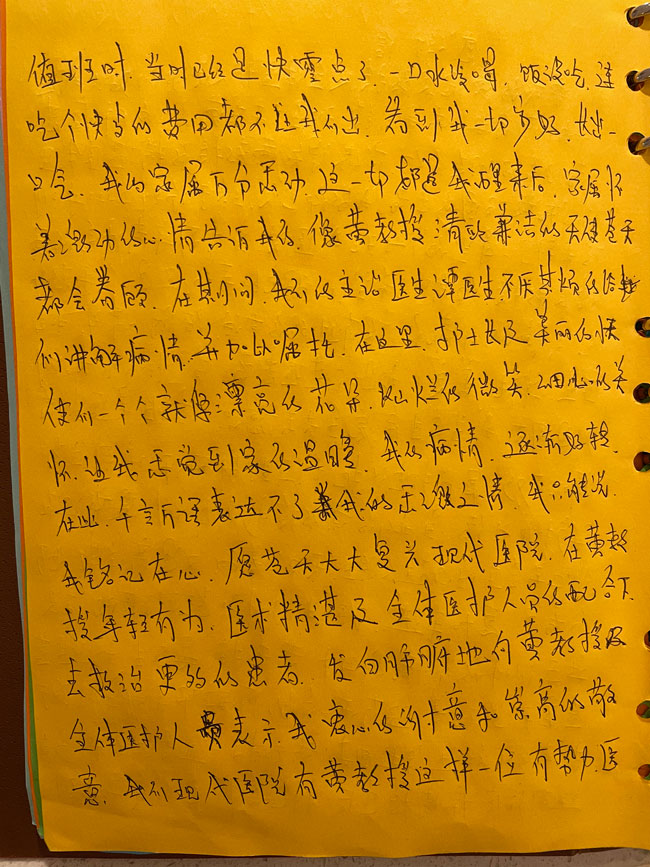 值班时.当时已经是快零点了.一口水没喝.饭没吃.连
吃个快餐的费用都不让我们出.看到我一切安好.她一
口会.我的家属万分感动.这一切都是我醒来后.家属怀
着激动的心情告诉我的.像黄教授清廉兼洁的天使苍天
都会眷顾.在其间.我们的主治医生谭医生不厌其烦的给
们讲解病情.并加以嘱托.在这里.护士长及美丽的快
使们一个个就像漂亮的花朵.灿烂的微笑.细心的关
怀.让我感觉到家的温暖.我的病情.逐渐好转.
在此.千言万语表达不了我的感激之情.我只能说.
我铭记在心.愿苍天大大复兴现代医院.在黄教
授年轻有为.医术精湛及全体医护人员的配合下.
去救治更多的患者.发自肺腑地向黄教授及
全体医护人员表示我衷心的谢意和崇高的敬
意.我们现代医院有黄教授这样一位有势力.医